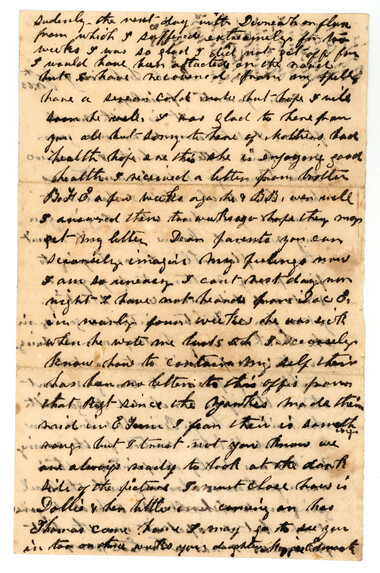 sudenly the next day with
from which I suffered extremely for two
weeks I was so glad I did not get off for
I would have been attacted on the road
but I have recovered from my spell
have a severe cold now but hope I will
soon be well I was glad to here from
you all but sorry to hear of Mothers bad
health hope ere this she is enjoying good
health I received a letter from brother
a few weeks ago he & were well
I answered there two weeks ago hope they may
get my letter Dear parents you can
imagin my feelings now
I am so uneasy I cant rest day nor
night I have not heard from
in nearly four weekes he was sick
when he wrote me last I
know how to contain my self their
has been no letters to this offis from
that Regt since the Yankies made their
raid in E Tenn I fear their is something
rong but I trust not you know we
are always ready to look at the dark
side of the picture I must close how is
Dollie & her little one coming on has
Thomas come home I may go to see you
in two or three weeks your daughter